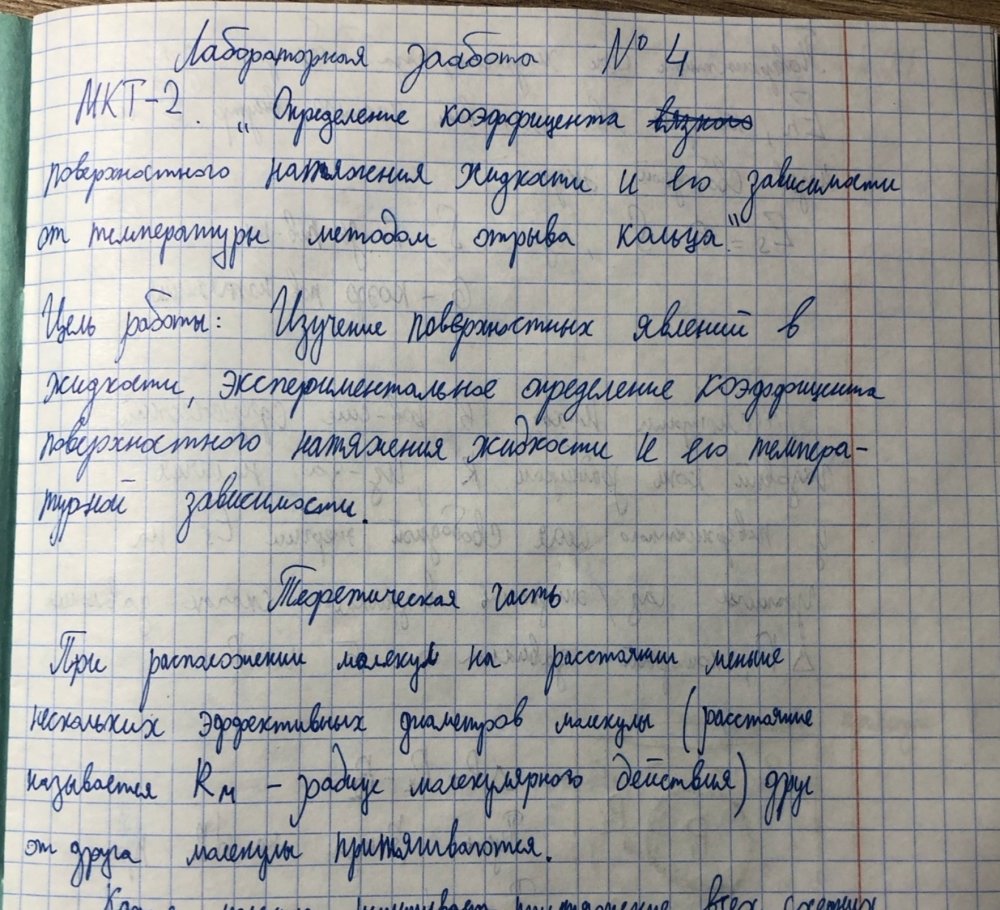 Лабораторная работа № 4
МКТ-2. "Определение коэффицента вязкого
поверхностного натяжения жидкости и его зависимости
от температуры методом отрыва кольца."
Цель работы: Изучение поверхностных явлений в
жидкости, экспериментальное определение коэффицента
поверхностного натяжения жидкости и его темпера-
турной зависимости.
Теоретическая часть
При расположении молекул на расстоянии меньше
нескольких эффективных диаметров молекулы (расстояние
называется Rм - радиус молекулярного действия) друг
от друга молекулы притягиваются.
притяжение всех соседних